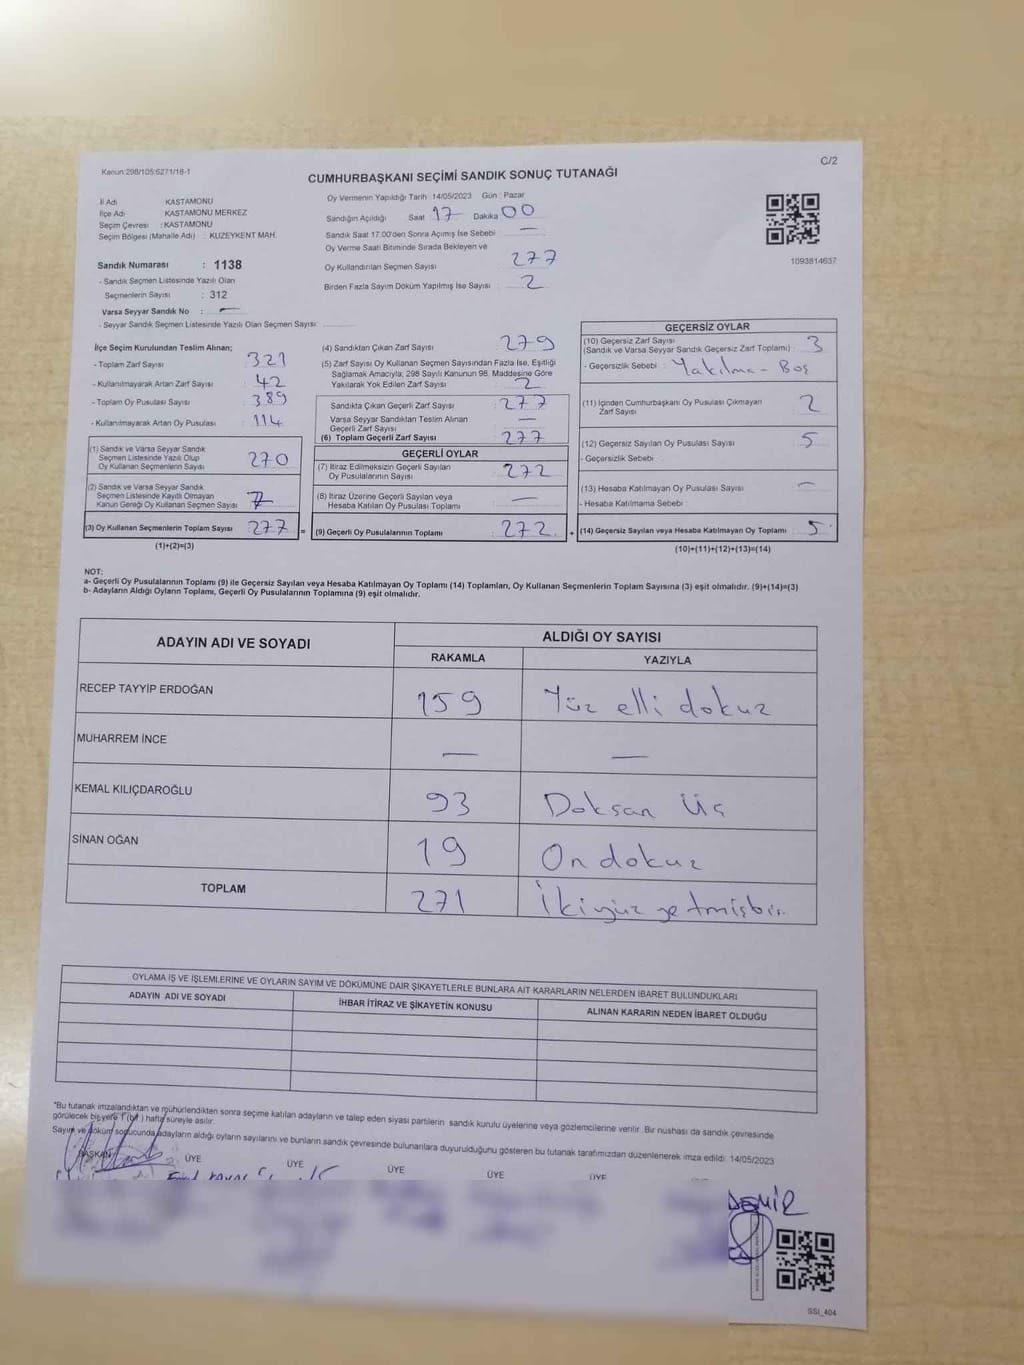 Kanun:298/105;6271/16-1
C/2
CUMHURBAŞKANI SEÇİMİ SANDIK SONUÇ TUTANAĞI
İl Adı KASTAMONU
İlçe Adı KASTAMONU MERKEZ
Seçim Çevresi : KASTAMONU
Seçim Bölgesi (Mahalle Adı) : KUZEYKENT MAH.
Sandık Numarası : 1138
- Sandık Seçmen Listesinde Yazılı Olan
Seçmenlerin Sayısı : 312
Varsa Seyyar Sandık No : —
- Seyyar Sandık Seçmen Listesinde Yazılı Olan Seçmen Sayısı:
Oy Vermenin Yapıldığı Tarih :14/05/2023 Gün : Pazar
Sandığın Açıldığı Saat 17 Dakika 00
Sandık Saat 17:00'den Sonra Açılmış İse Sebebi —
Oy Verme Saati Bitiminde Sırada Bekleyen ve
Oy Kullandırılan Seçmen Sayısı 277
Birden Fazla Sayım Döküm Yapılmış İse Sayısı 2
1093814637
İlçe Seçim Kurulundan Teslim Alınan;
- Toplam Zarf Sayısı 321
- Kullanılmayarak Artan Zarf Sayısı 42
- Toplam Oy Pusulası Sayısı 389
- Kullanılmayarak Artan Oy Pusulası 114
(1) Sandık ve Varsa Seyyar Sandık
Seçmen Listesinde Yazılı Olup
Oy Kullanan Seçmenlerin Sayısı 270
(2) Sandık ve Varsa Seyyar Sandık
Seçmen Listesinde Kayıtlı Olmayan
Kanun Gereği Oy Kullanan Seçmen Sayısı 7
(3) Oy Kullanan Seçmenlerin Toplam Sayısı 277 =
(1)+(2)=(3)
(4) Sandıktan Çıkan Zarf Sayısı 279
(5) Zarf Sayısı Oy Kullanan Seçmen Sayısından Fazla İse, Eşitliği
Sağlamak Amacıyla; 298 Sayılı Kanunun 98. Maddesine Göre
Yakılarak Yok Edilen Zarf Sayısı 2
Sandıkta Çıkan Geçerli Zarf Sayısı 277
Varsa Seyyar Sandıktan Teslim Alınan
Geçerli Zarf Sayısı —
(6) Toplam Geçerli Zarf Sayısı 277
GEÇERLİ OYLAR
(7) İtiraz Edilmeksizin Geçerli Sayılan
Oy Pusulalarının Sayısı 272
(8) İtiraz Üzerine Geçerli Sayılan veya
Hesaba Katılan Oy Pusulası Toplamı —
(9) Geçerli Oy Pusulalarının Toplamı 272 +
GEÇERSİZ OYLAR
(10) Geçersiz Zarf Sayısı
(Sandık ve Varsa Seyyar Sandık Geçersiz Zarf Toplamı) 3
- Geçersizlik Sebebi : Yakılma - Boş
(11) İçinden Cumhurbaşkanı Oy Pusulası Çıkmayan
Zarf Sayısı 2
(12) Geçersiz Sayılan Oy Pusulası Sayısı 5
- Geçersizlik Sebebi
(13) Hesaba Katılmayan Oy Pusulası Sayısı —
- Hesaba Katılmama Sebebi
(14) Geçersiz Sayılan veya Hesaba Katılmayan Oy Toplamı 5
(10)+(11)+(12)+(13)=(14)
NOT:
a- Geçerli Oy Pusulalarının Toplamı (9) ile Geçersiz Sayılan veya Hesaba Katılmayan Oy Toplamı (14) Toplamları, Oy Kullanan Seçmenlerin Toplam Sayısına (3) eşit olmalıdır. (9)+(14)=(3)
b- Adayların Aldığı Oyların Toplamı, Geçerli Oy Pusulalarının Toplamına (9) eşit olmalıdır.
ADAYIN ADI VE SOYADI ALDIĞI OY SAYISI
RAKAMLA YAZIYLA
RECEP TAYYİP ERDOĞAN 159 Yüz elli dokuz
MUHARREM İNCE — —
KEMAL KILIÇDAROĞLU 93 Doksan Üç
SİNAN OĞAN 19 On dokuz
TOPLAM 271 İkiyüz yetmişbir
OYLAMA İŞ VE İŞLEMLERİNE VE OYLARIN SAYIM VE DÖKÜMÜNE DAİR ŞİKAYETLERLE BUNLARA AİT KARARLARIN NELERDEN İBARET BULUNDUKLARI
ADAYIN ADI VE SOYADI İHBAR İTİRAZ VE ŞİKAYETİN KONUSU ALINAN KARARIN NEDEN İBARET OLDUĞU
*Bu tutanak imzalandıktan ve mühürlendikten sonra seçime katılan adayların ve talep eden siyasi partilerin sandık kurulu üyelerine veya gözlemcilerine verilir. Bir nüshası da sandık çevresinde
görülecek bir yere 1 (bir) hafta süreyle asılır.
Sayım ve döküm sonucunda adayların aldığı oyların sayılarını ve bunların sandık çevresinde bulunanlara duyurulduğunu gösteren bu tutanak tarafımızdan düzenlenerek imza edildi. 14/05/2023
BAŞKAN ÜYE ÜYE ÜYE ÜYE ÜYE
DEMİR
SSI_404